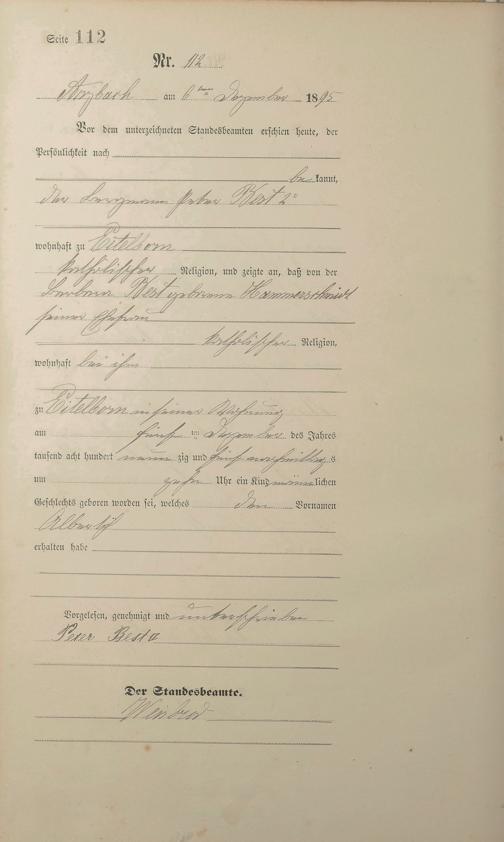 Seite 112
Nr. 112
Arzbach am 6ten Dezember 1895
Vor dem unterzeichneten Standesbeamten erschien heute, der
Persönlichkeit nach
be kannt,
der Bergmann Peter Best 2r
wohnhaft zu Eitelborn
katholischer Religion, und zeigte an, daß von der
Barbara Best geborene Hammerschmidt
seiner Ehefrau
katholischer Religion,
wohnhaft bei ihm
zu Eitelborn in seiner Wohnung
am fünf ten Dezember des Jahres
tausend acht hundert neun zig und fünf nachmittags
um zehn Uhr ein Kind männlichen
Geschlechts geboren worden sei, welches den Vornamen
Albert
erhalten habe
Vorgelesen, genehmigt und unterschrieben
Peter Best
Der Standesbeamte.